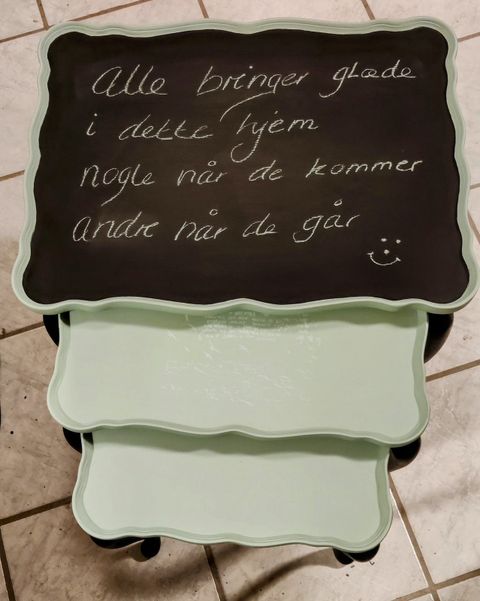 Alle bringer glæde
i dette hjem
nogle når de kommer
andre når de går